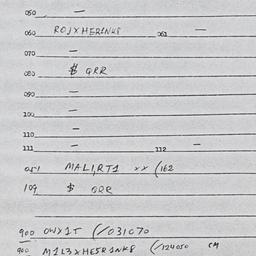 050 —
060 ROJXHERINKS 061 —
070 —
080 $ QRR
090 —
100 —
110 —
111 — 112 —
051 MALI,RTI xx (162
109 $ QRR
900 OWXIT (/031070
900 MIL3XHESRINKS (/124050 CM